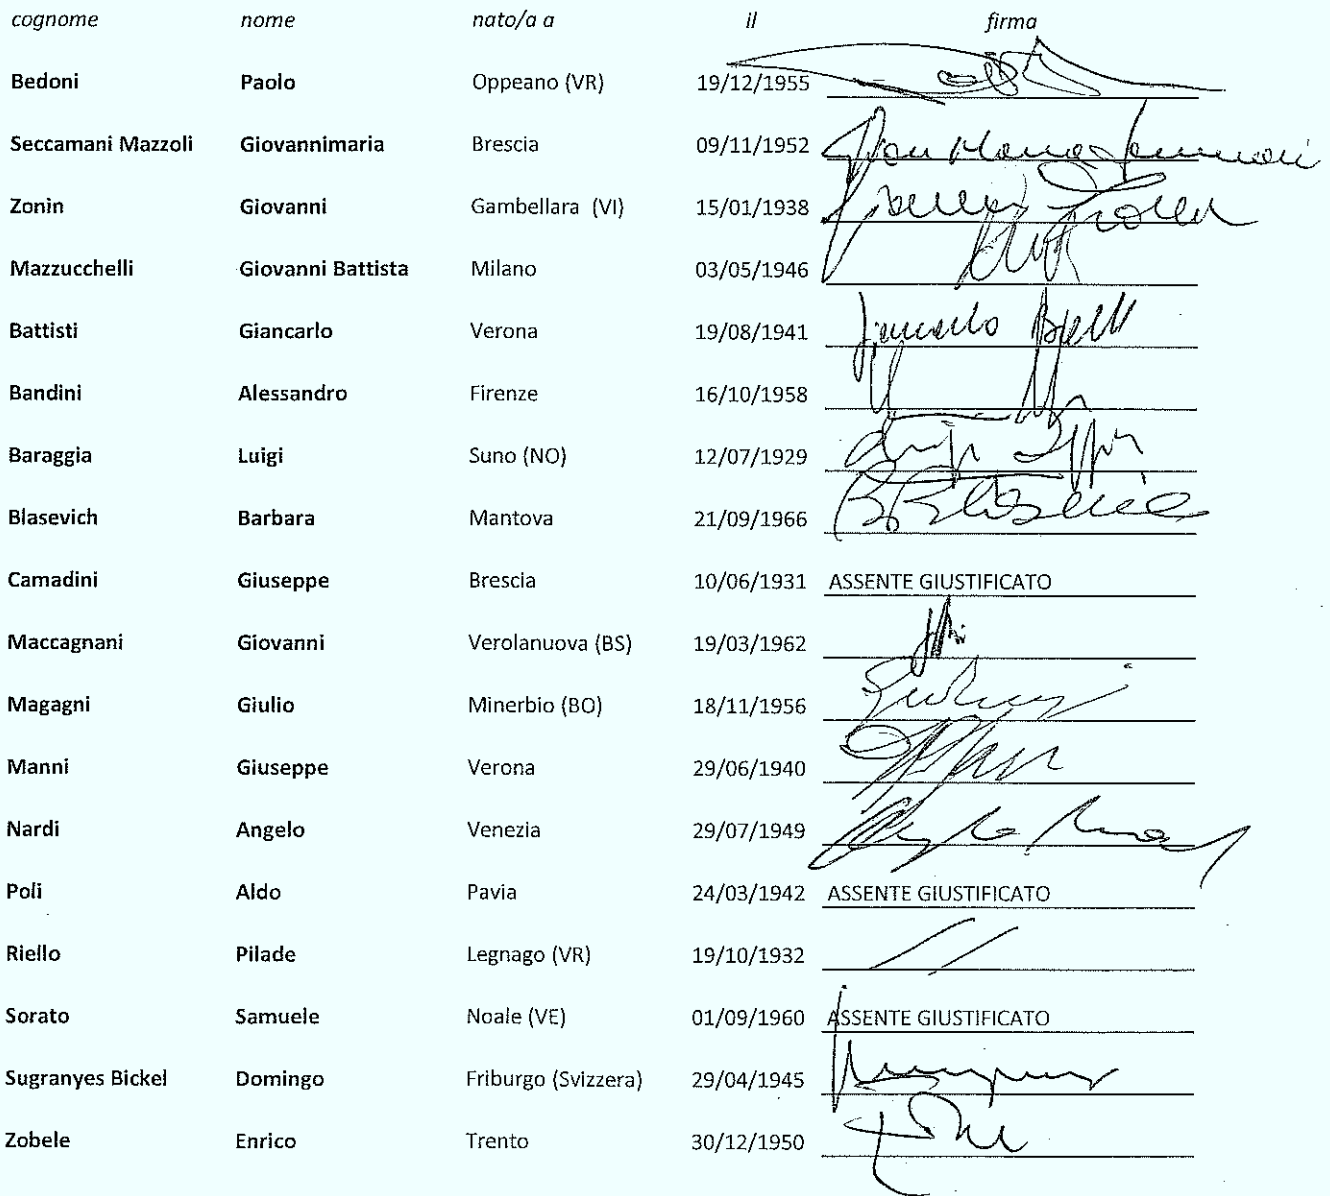 cognome nome nato/a a il firma
Bedoni Paolo Oppeano (VR) 19/12/1955
Seccamani Mazzoli Giovannimaria Brescia 09/11/1952
Zonin Giovanni Gambellara (VI) 15/01/1938
Mazzucchelli Giovanni Battista Milano 03/05/1946
Battisti Giancarlo Verona 19/08/1941 Giancarlo
Bandini Alessandro Firenze 16/10/1958
Baraggia Luigi Suno (NO) 12/07/1929
Blasevich Barbara Mantova 21/09/1966
Camadini Giuseppe Brescia 10/06/1931 ASSENTE GIUSTIFICATO
Maccagnani Giovanni Verolanuova (BS) 19/03/1962
Magagni Giulio Minerbio (BO) 18/11/1956
Manni Giuseppe Verona 29/06/1940
Nardi Angelo Venezia 29/07/1949
Poli Aldo Pavia 24/03/1942 ASSENTE GIUSTIFICATO
Riello Pilade Legnago (VR) 19/10/1932
Sorato Samuele Noale (VE) 01/09/1960 ASSENTE GIUSTIFICATO
Sugranyes Bickel Domingo Friburgo (Svizzera) 29/04/1945
Zobele Enrico Trento 30/12/1950